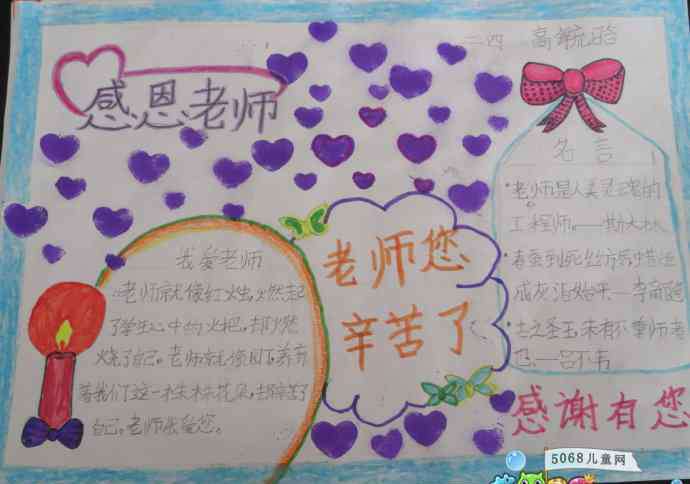 二四 高毓晗
感恩老师
名言
老师是人类灵魂的
工程师。——斯大林
春蚕到死丝方尽,蜡炬
成灰泪始干。——李商隐
古之圣王,未有不尊师者
也。——吕不韦
我爱老师
老师就像红烛,燃起
了学生心中的火把,却燃
烧了自己。老师就像园丁,养育
着我们这一株株花朵,却辛苦了
自己。老师我爱您。
老师您
辛苦了
感谢有您
5068儿童网